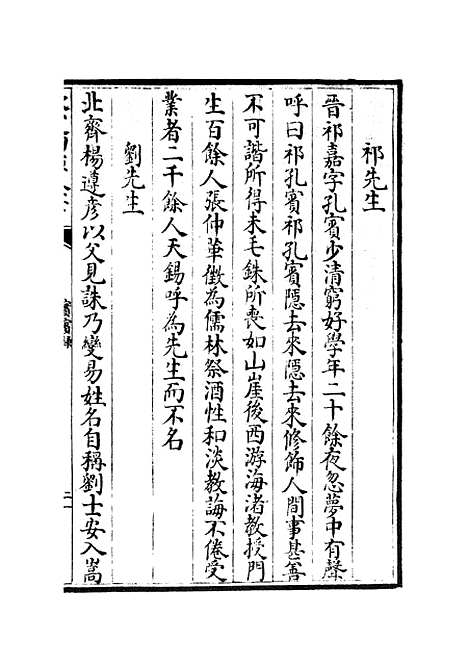 祁先生
晋祁嘉字孔賓少清窮好學年二十餘夜忽夢中有聲
呼曰祁孔賓祁孔賓隱去來隱去來修飾人間事甚苦
不可諧所得未毛銖所喪如山崖後西游海渚教授門
生百餘人張仲華徵為儒林祭酒性和淡教誨不倦受
業者二千餘人天錫呼為先生而不名
劉先生
北齊楊遵彦以父見誅乃變易姓名自稱劉士安入嵩
賓賓録